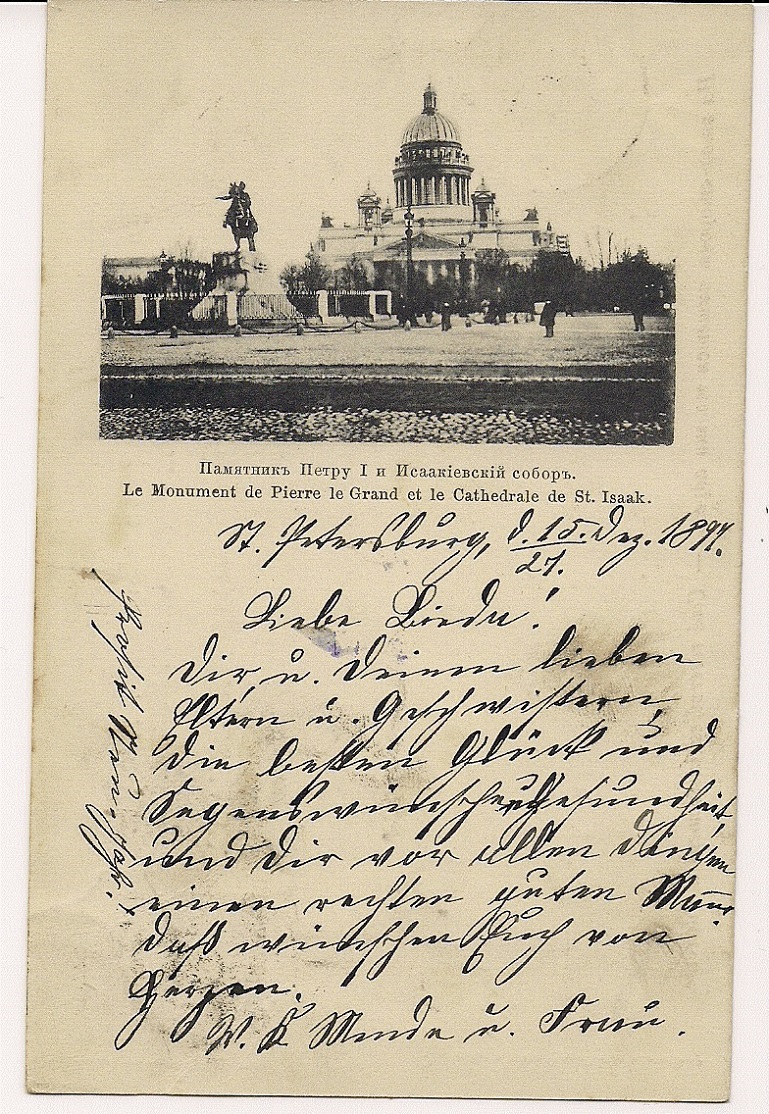 Памятникъ Петру I и Исаакіевскій соборъ.
Le Monument de Pierre le Grand et le Cathedrale de St. Isaak.
St. Petersburg, d. 15./27. Dez. 1897.
Liebe
Dir u. Deinen lieben
Eltern u. Geschwistern,
die besten Glück und
Segenswünsche, Gesundheit,
und Dir vor allen Dingen
einen rechten guten Mann,
daß wünschen Euch von
Herzen.
W. K Mende u. Frau.
Prosit Neu-Jahr!